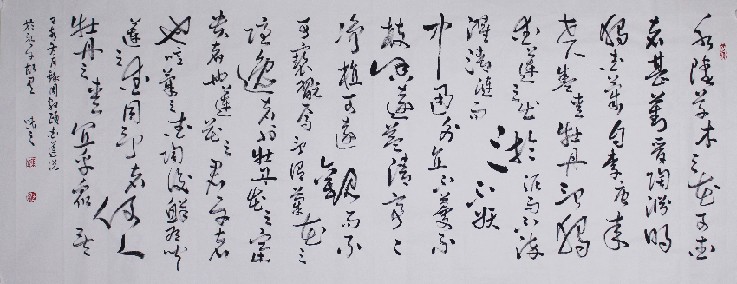 水陸草木之花可愛
者甚蕃晉陶淵明
獨愛菊自李唐來
世人甚愛牡丹予獨
愛蓮之出於淤泥而不染
濯清漣而不妖
中通外直不蔓不
枝香遠益清亭亭
淨植可遠觀而不
可褻翫焉予謂菊花之
隱逸者也牡丹花之富
貴者也蓮花之君子者
也噫菊之愛陶後鮮有聞
蓮之愛同予者何人
牡丹之愛宜乎眾矣
錄周敦頤愛蓮說